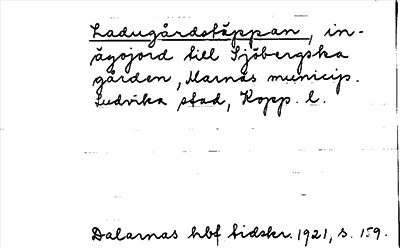 Ladugårdstäppan, in-
ägojord till Sjöbergska
gården, Marnäs municip.
Ludvika stad, Kopp. l.
Dalarnas hbf. tidskr. 1921, s. 159.